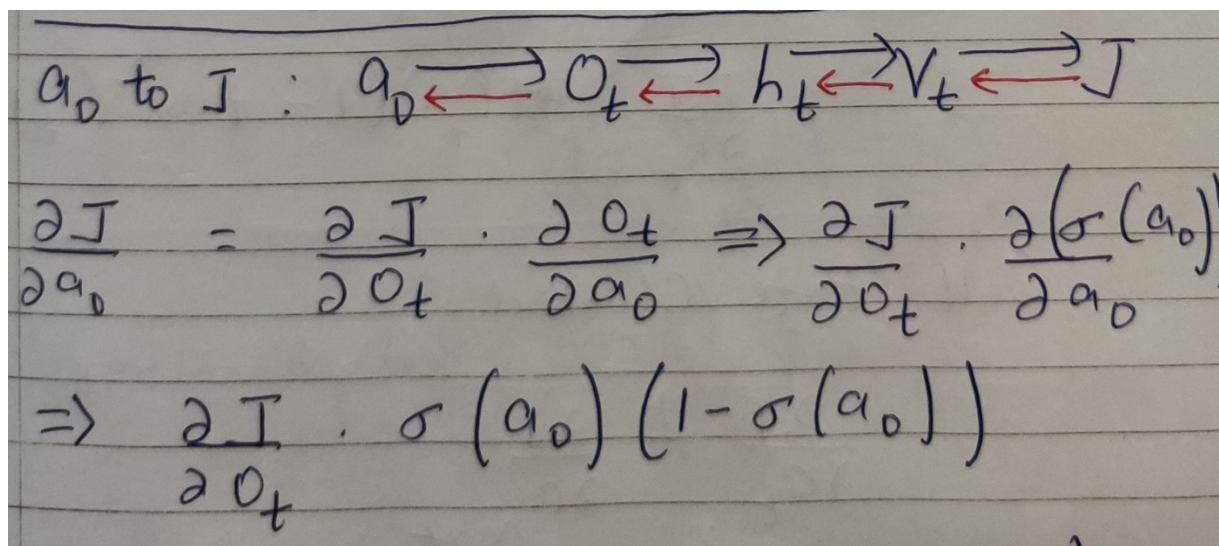 a₀ to J : a₀ ⟶ O_t ⟶ h_t ⟶ V_t ⟶ J
∂J/∂a₀ = ∂J/∂O_t · ∂O_t/∂a₀ ⇒ ∂J/∂O_t · ∂(σ(a₀))/∂a₀
⇒ ∂J/∂O_t · σ(a₀)(1 - σ(a₀))